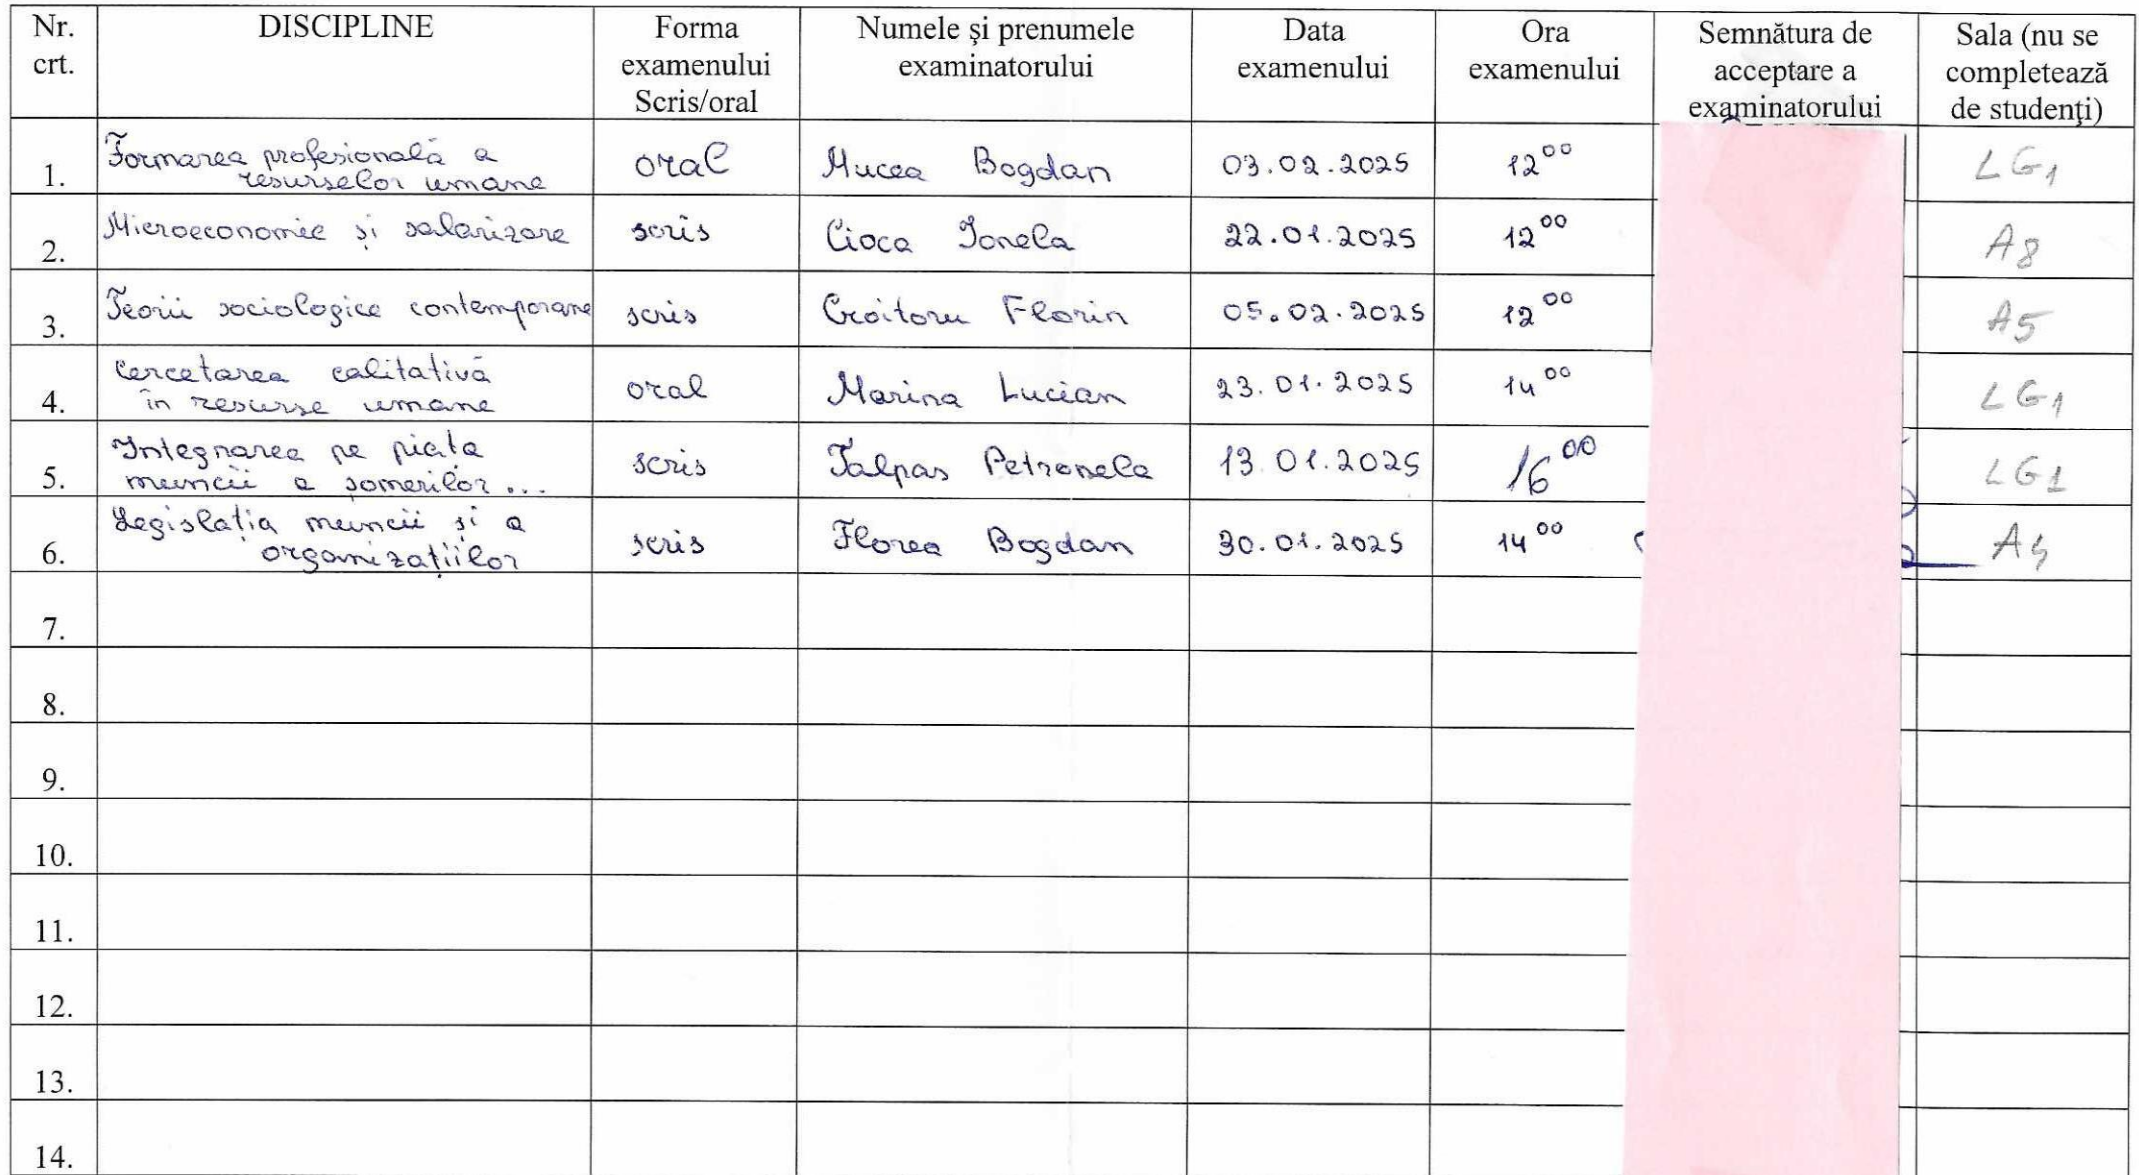 Nr. crt. DISCIPLINE Forma examenului Scris/oral Numele şi prenumele examinatorului Data examenului Ora examenului Semnătura de acceptare a examinatorului Sala (nu se completează de studenţi)
1. Formarea profesională a resurselor umane oral Mucea Bogdan 03.02.2025 12⁰⁰ LG1
2. Microeconomie și salarizare scris Cioca Ionela 22.01.2025 12⁰⁰ A8
3. Teorii sociologice contemporane scris Croitoru Florin 05.02.2025 12⁰⁰ A5
4. Cercetarea calitativă în resurse umane oral Marina Lucian 23.01.2025 14⁰⁰ LG1
5. Integrarea pe piata muncii a șomerilor... scris Talpas Petronela 13.01.2025 16⁰⁰ LG1
6. Legislația muncii și a organizațiilor scris Florea Bogdan 30.01.2025 14⁰⁰
7.
8.
9.
10.
11.
12.
13.
14.